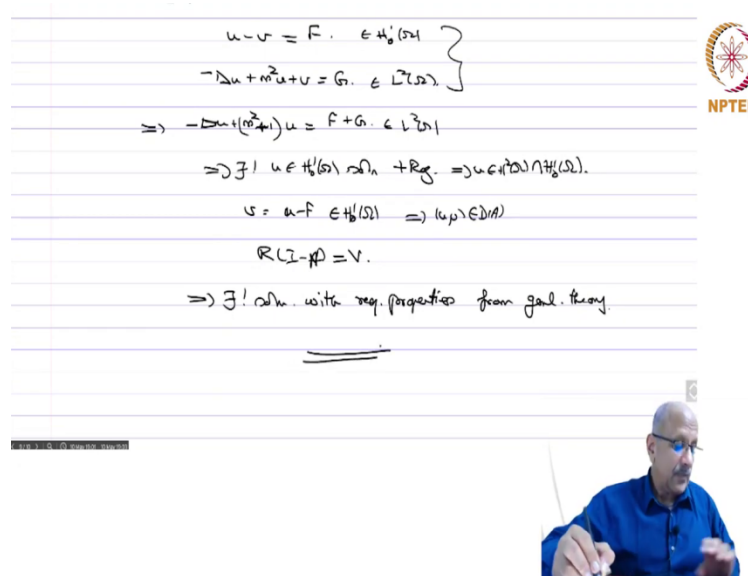 u - v = F. ∈ H₀¹(Ω)
-Δu + m²u + v = G. ∈ L²(Ω).
⇒ -Δu + (m²+1)u = F + G. ∈ L²(Ω)
⇒ ∃! u ∈ H₀¹(Ω) soln +Reg. ⇒ u ∈ H²(Ω) ∩ H₀¹(Ω).
v = u - F ∈ H₀¹(Ω) ⇒ (u,v) ∈ D(A)
R(I-A) = V.
⇒ ∃! soln. with req. properties from genl. theory.
NPTEL